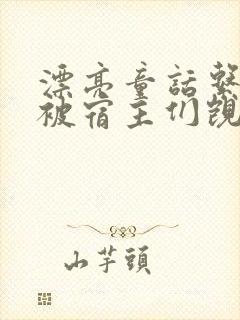 漂亮童話繫
被宿主们覬
山芋頭